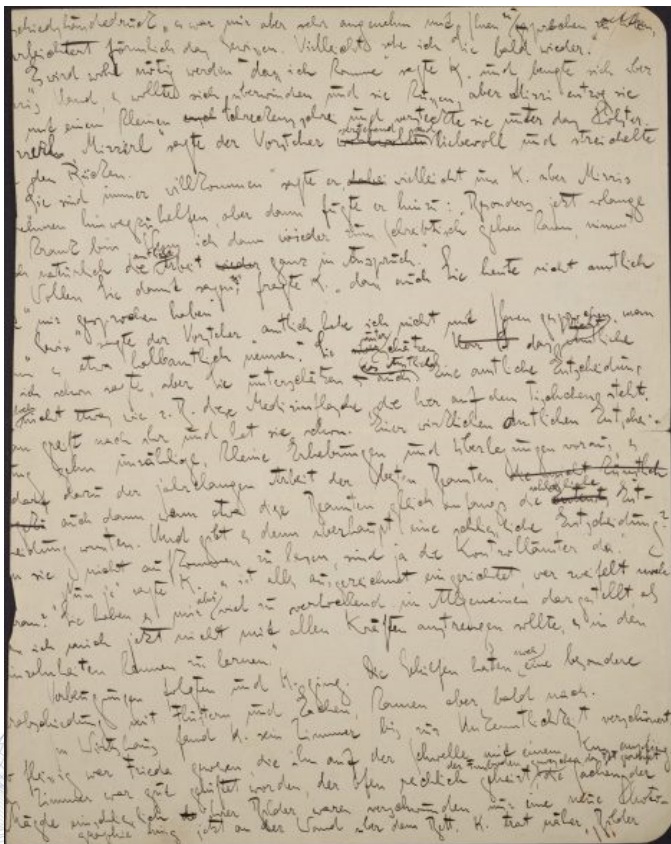 schiedshändedruck, es war mir aber sehr angenehm mit Ihnen gesprochen zu haben,
erleichtert förmlich das Gewissen. Vielleicht sehe ich Sie bald wieder."
Es wird wohl nötig werden dass ich komme" sagte K. und beugte sich über
Hand, er wollte sich überwinden und sie küssen, aber Mizzi entzog sie
mit einem kleinen Schreckensrufe und versteckte sie unter das Polster.
Mizzerl" sagte der Vorsteher verzeihend und liebevoll und streichelte
den Rücken.
Sie sind immer willkommen" sagte er vielleicht um K. über Mizzis
nehmen hinwegzuhelfen, aber dann fügte er hinzu: Besonders jetzt solange
krank bin. Wenn ich dann wieder zum Schreibtisch gehen kann, nimmt
natürlich die amtliche Arbeit ganz in Anspruch.
Wollen Sie damit sagen" fragte K. „dass auch Sie heute nicht amtlich
mir gesprochen haben"
Gewiss" sagte der Vorsteher amtlich habe ich nicht mit Ihnen gesprochen, man
es etwa halbamtlich nennen. Sie unterschätzen das Nichtamtliche
ich schon sagte, aber Sie unterschätzen auch das Amtliche. Eine amtliche Entscheidung
nicht etwas wie z.B. diese Medizinflasche, die hier auf dem Tischchen steht.
greift nach ihr und hat sie schon. Einer wirklichen amtlichen Entschei-
gehn unzählige, kleine Erhebungen und Überlegungen voraus, es
darf dazu der jahrelangen Arbeit der besten Beamten
auch dann wenn etwa diese Beamten gleich anfangs die schliessliche Ent-
heidung wussten. Und gibt es denn überhaupt eine schliessliche Entscheidung?
sie nicht aufkommen zu lassen, sind ja die Kontrollämter da."
Nun ja" sagte K. „es ist alles ausgezeichnet eingerichtet, wer zweifelt noch
ran? Sie haben es mir aber zu verlockend im Allgemeinen dargestellt, als
ich mich jetzt nicht mit allen Kräften anstrengen sollte, es in den
inzelnheiten kennen zu lernen."
Verbeugungen folgten und K. ging. Die Gehilfen hatten noch eine besondere
rabschiedung mit Flüstern und Lachen, kamen aber bald nach.
Im Wirtshaus fand K. sein Zimmer bis zur Unkenntlichkeit verschönert
fleissig war Frieda gewesen, die ihn auf der Schwelle mit einem Kuss empfing
Zimmer war gut gelüftet worden, der Ofen reichlich geheizt, der Fussboden gewaschen das Bett geordnet die Sachen der
Mägde einschliesslich ihrer Bilder waren verschwunden nur eine neue Photo-
graphie hing jetzt an der Wand über dem Bett. K. trat näher, Bilder